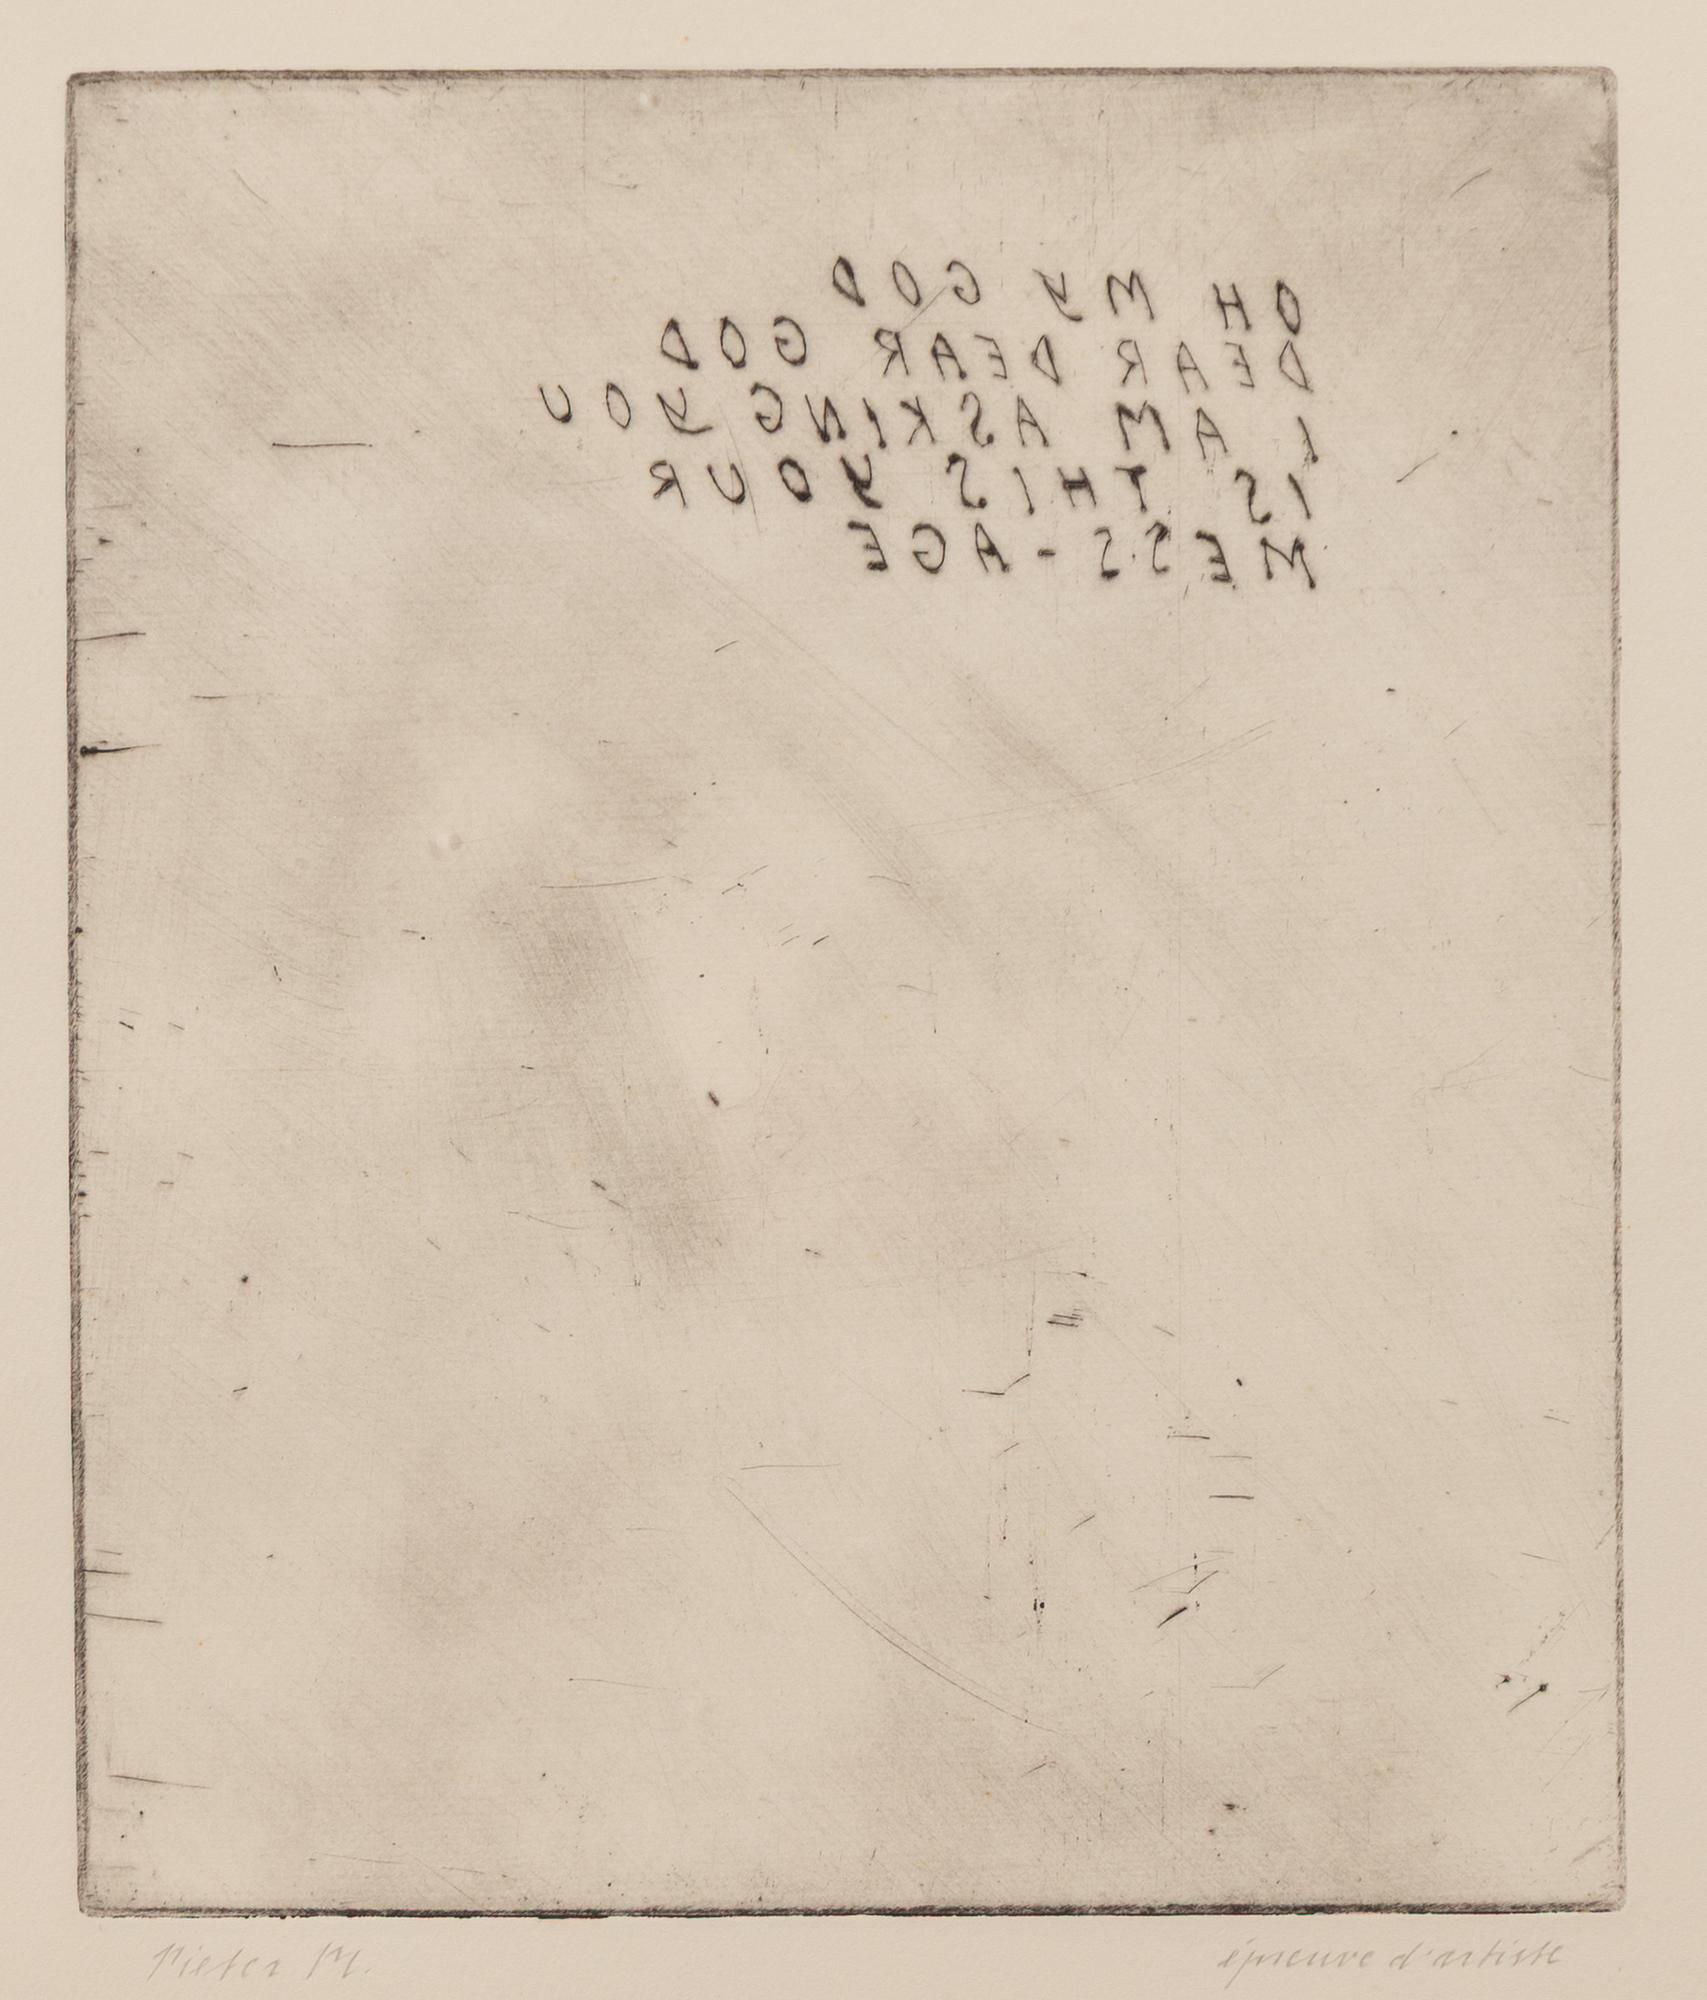 OH MY GOD
DEAR DEAR GOD
I AM ASKING YOU
IS THIS YOUR
MESS-AGE
Pieter M.
épreuve d'artiste